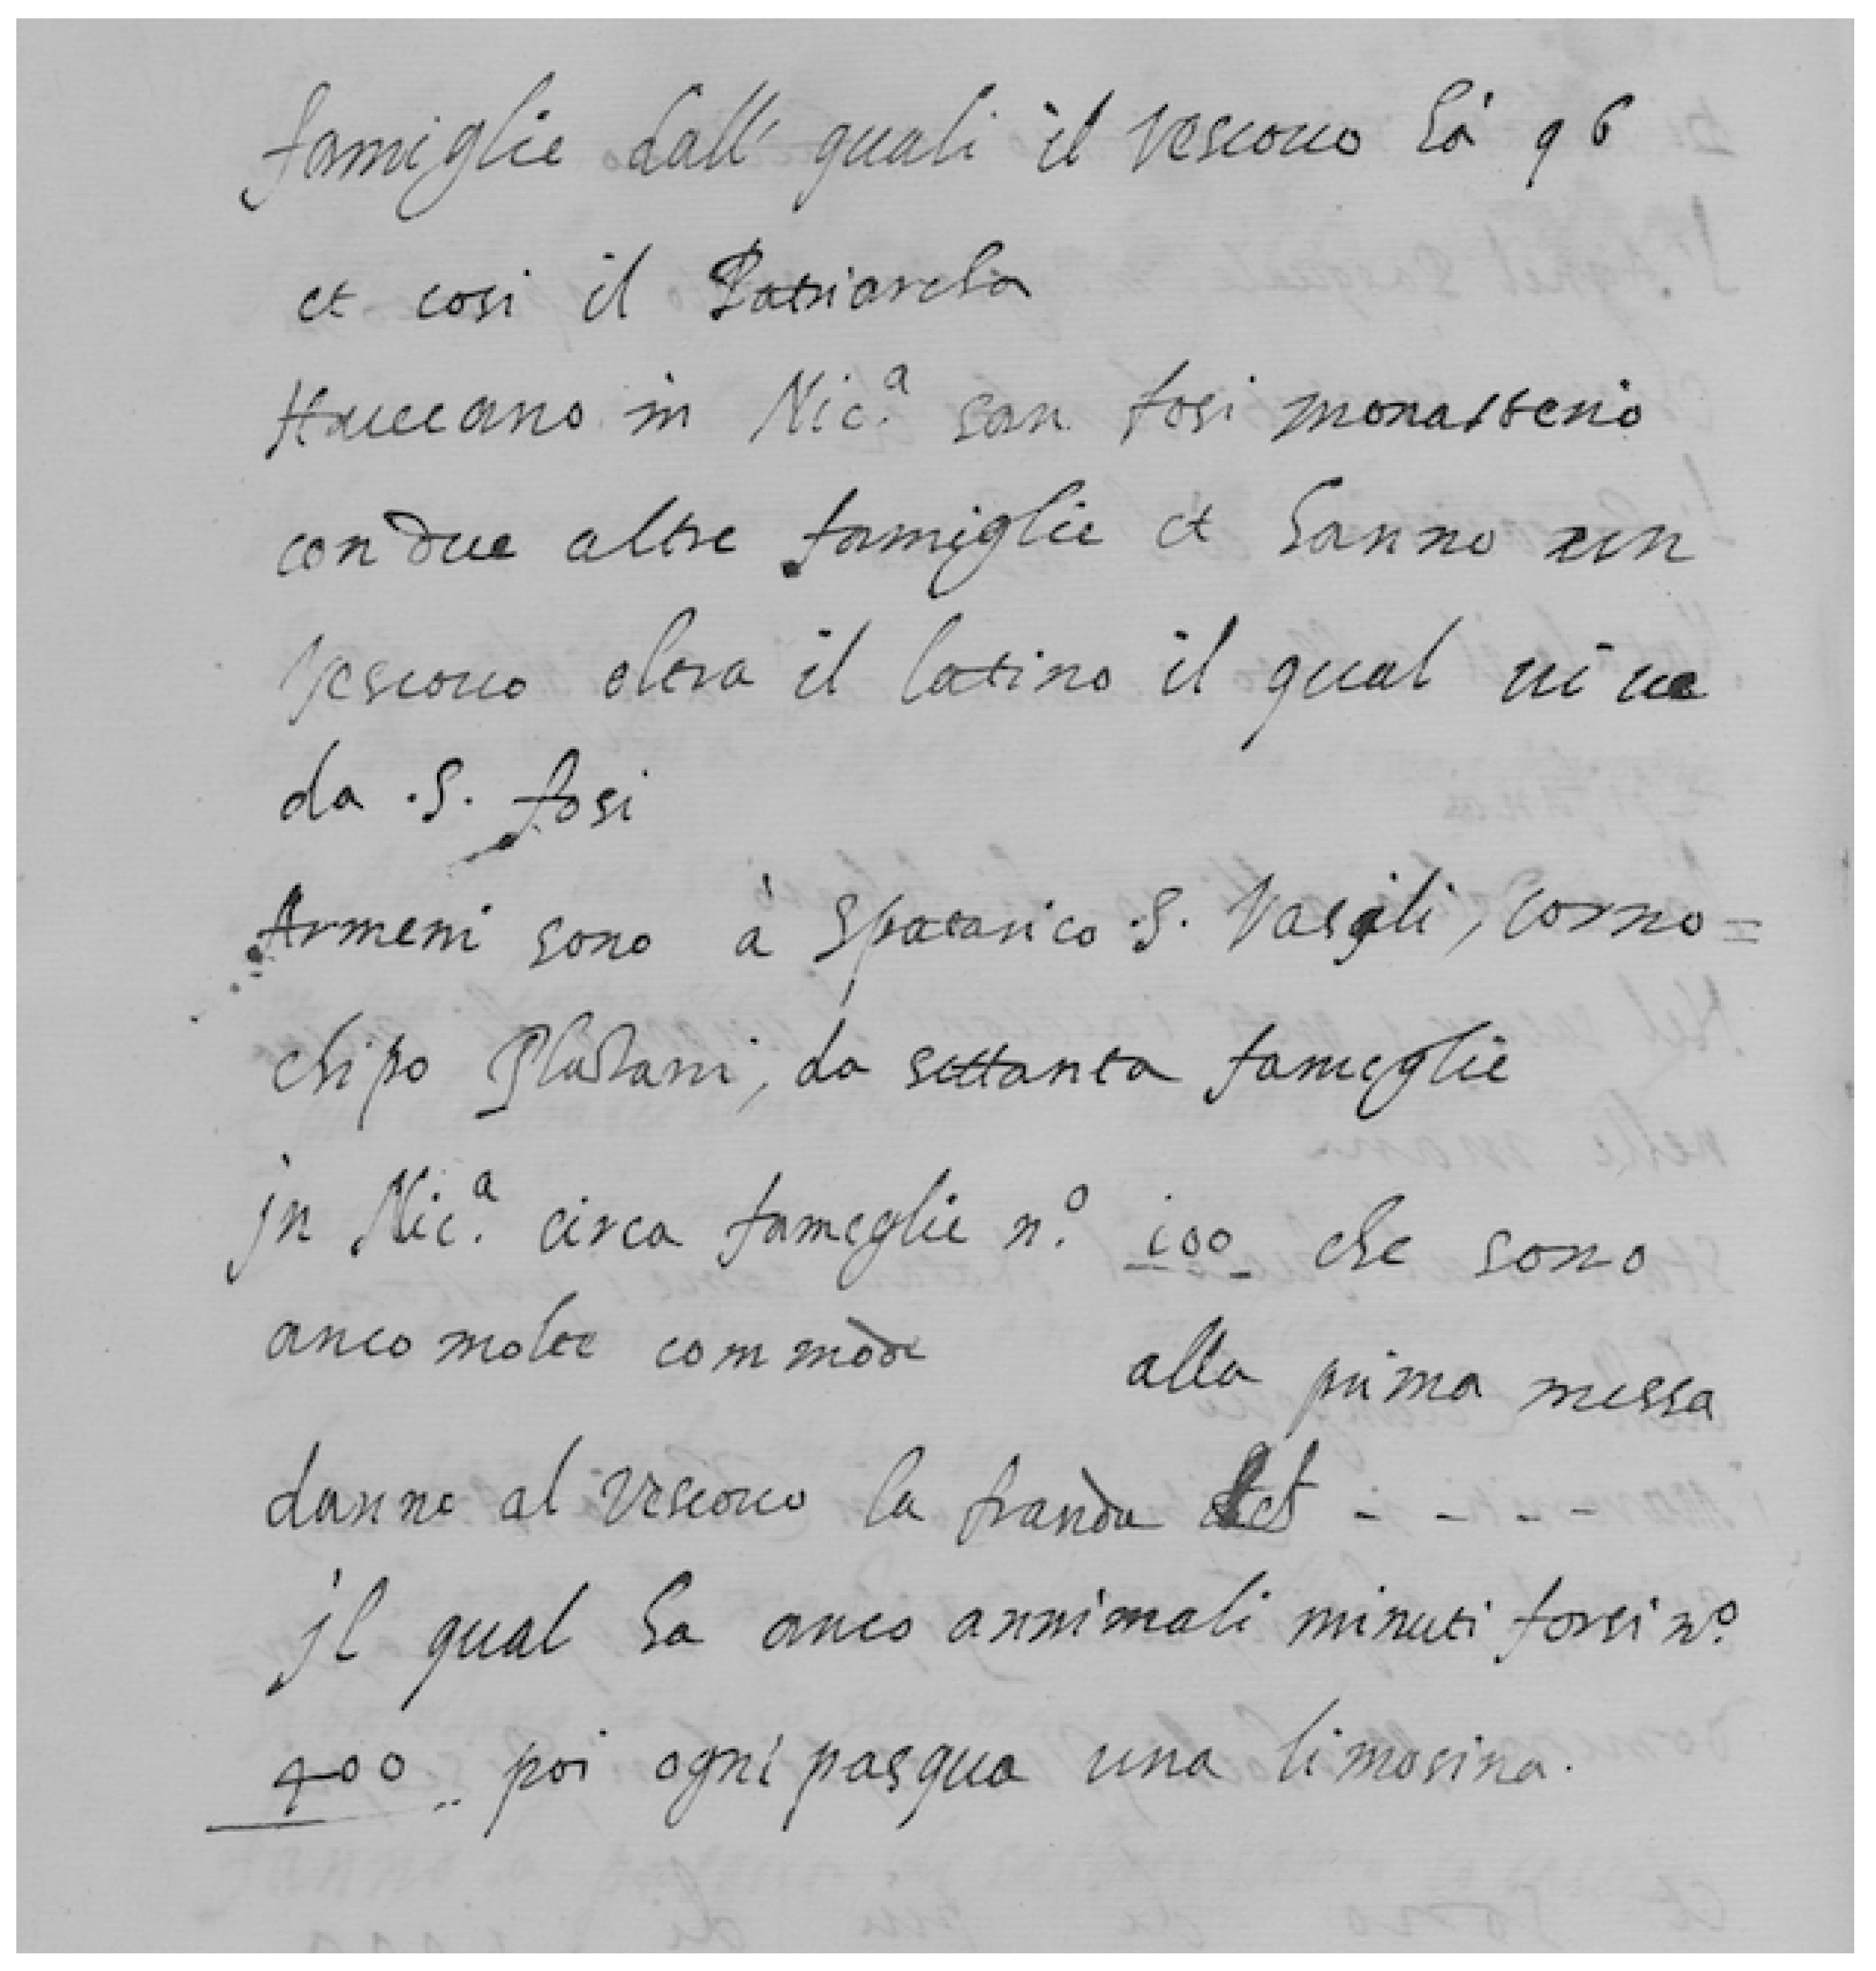 famiglie dall' quali il Vescovo hà 96
et cosi il Patriarcha
Haveano in Nic.ª san fosi monasterio
con due altre famiglie et hanno un
Vescovo oltra il latino il qual vive
da .S. fosi
Armeni sono à Spatarico .S. Vasili, corno=
chipo Platani, da settanta fameglie
jn Nic.ª circa fameglie n.º 100 che sono
anco molte commode alla prima messa
danno al Vescovo la franda - - - -
jl qual ha anco annimali minuti forsi nº.
400 .. poi ogni pasqua una limosina.